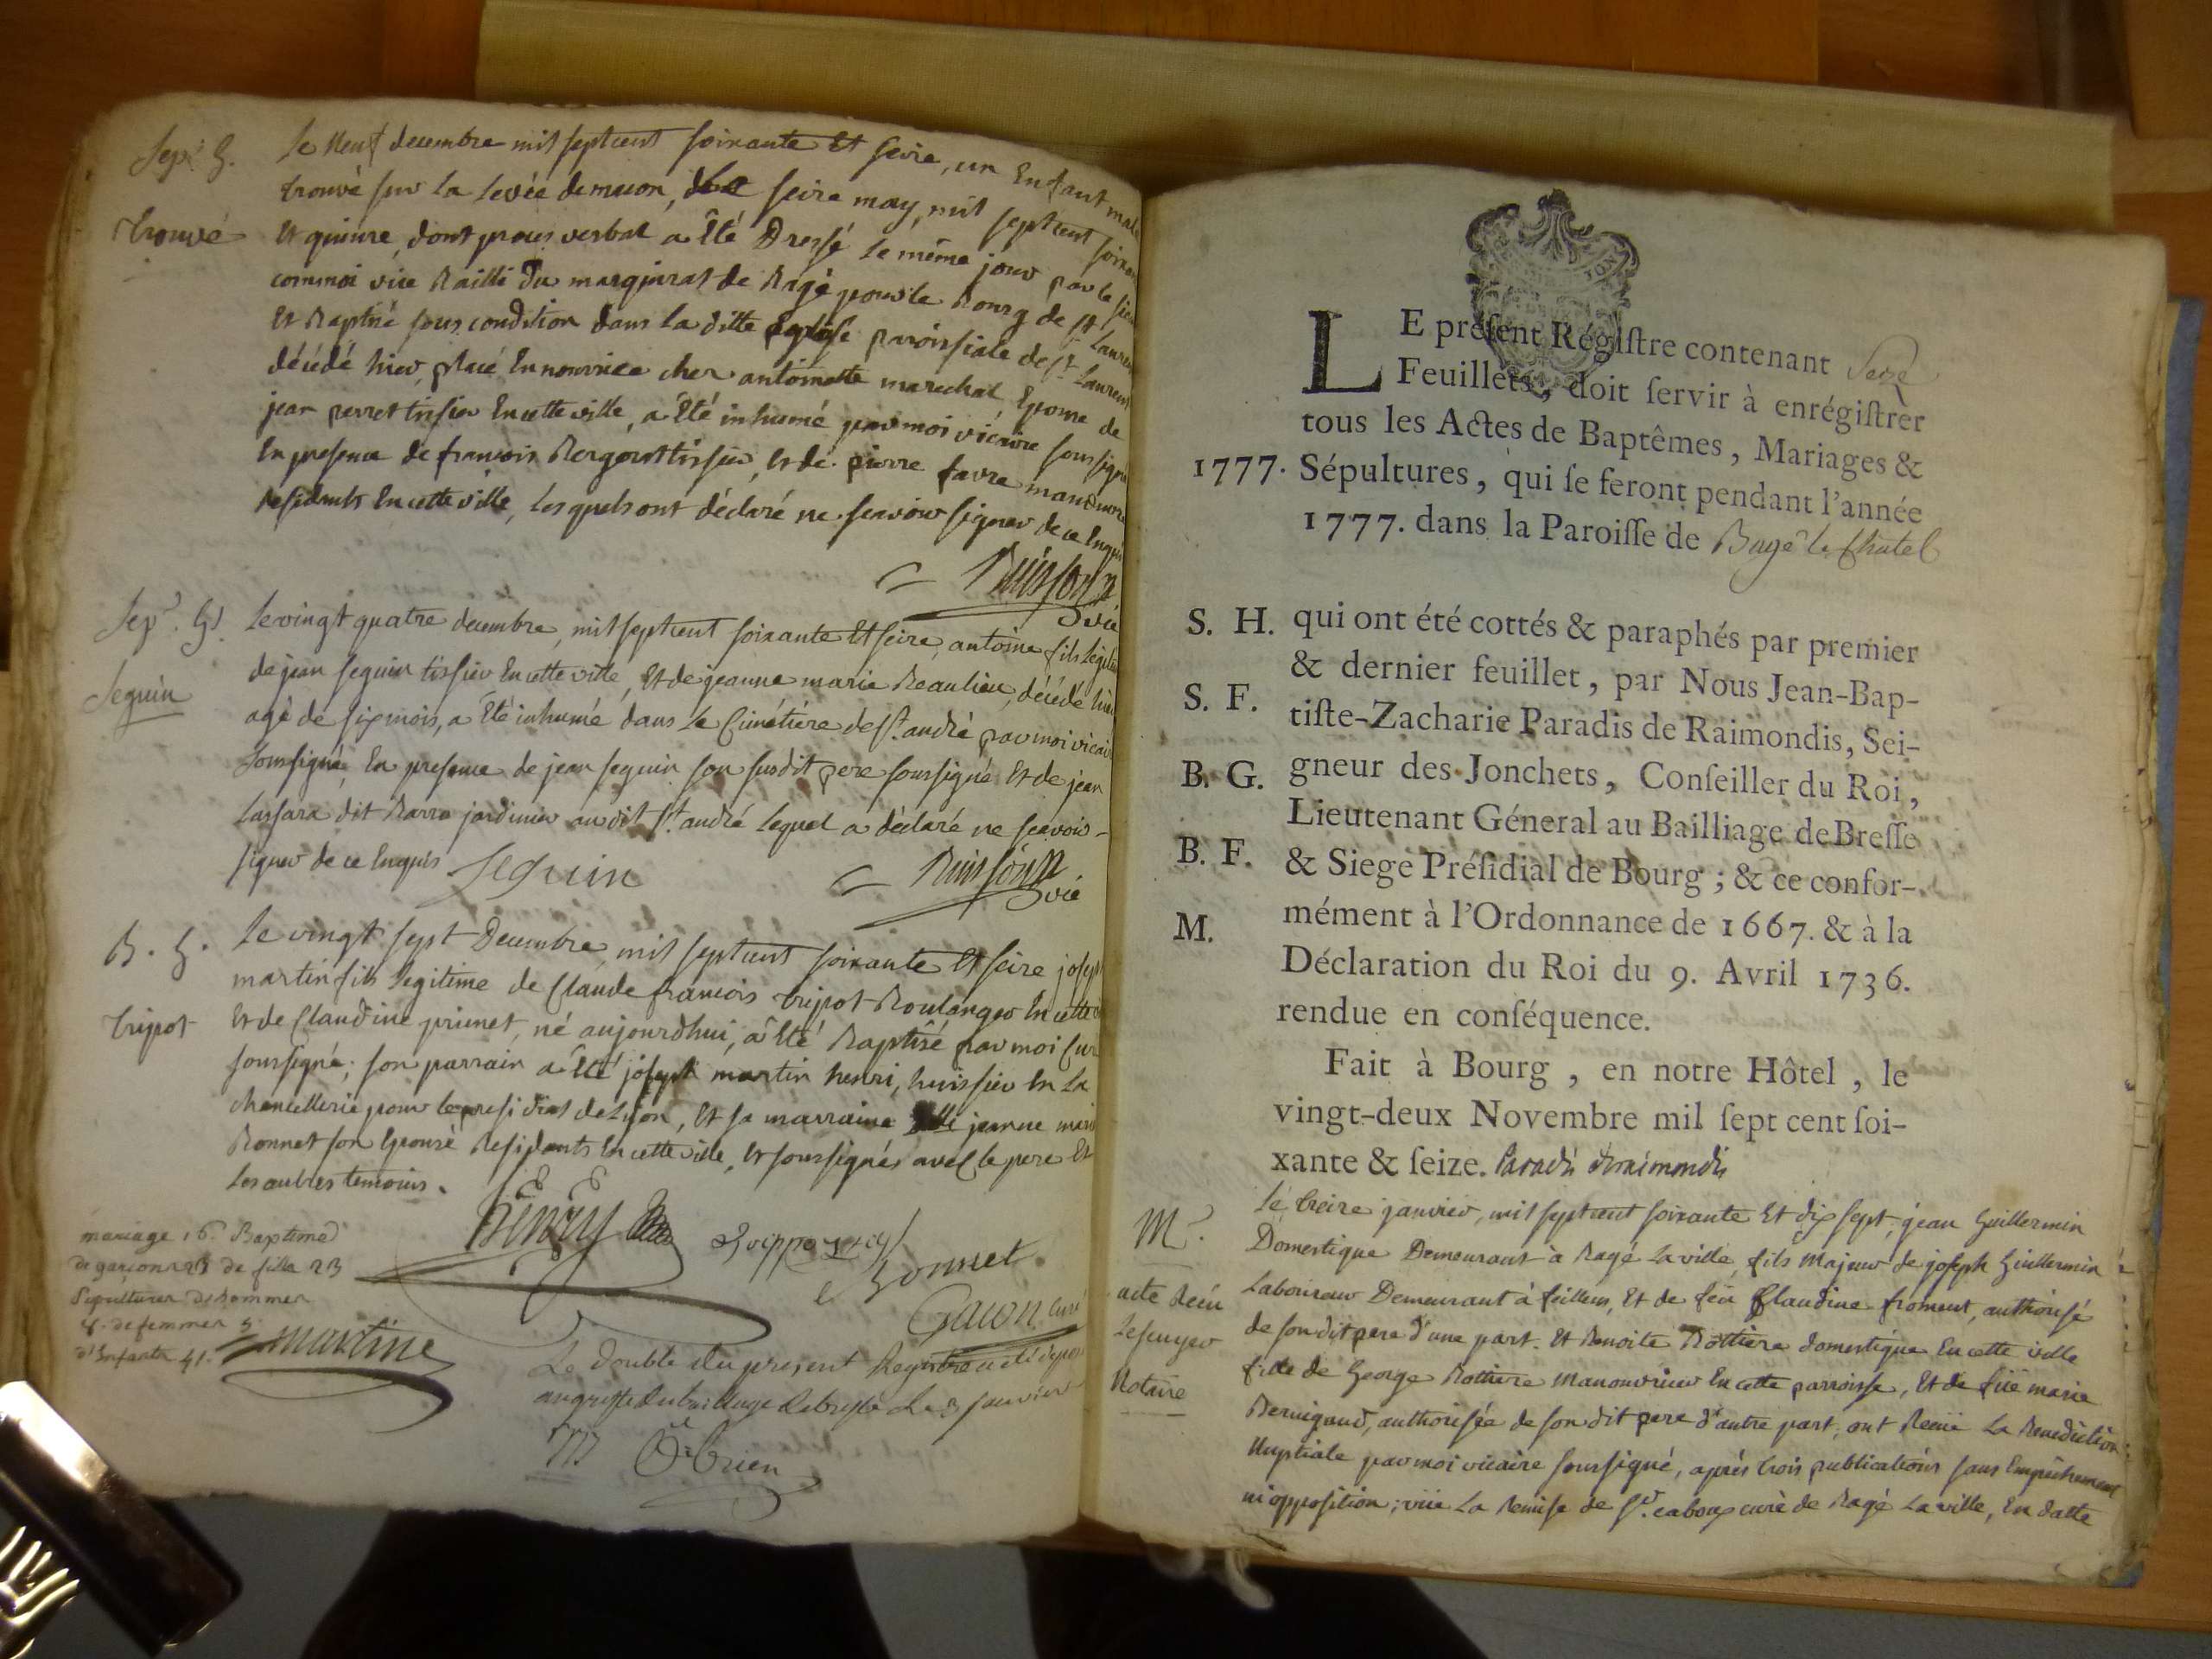 Sep. G.
Trouvé
Le neuf decembre mil septcent soixante et seize, un enfant male
trouvé sur la levée de macon, seize may, mil septcent soixan
et quinze, dont proces verbal a été dressé le même jour par le sieur
commoi vice Bailli du marquisat de Bagé pour le Bourg de St Laurent
et Baptisé sous condition dans la ditte Eglise paroissiale de St Laurent
décédé hier, placé en nourrice chez antoinette marechal Epouse de
jean perret tissier en cette ville, a été inhumé par moi vicaire soussigné
en presence de francois Bergeret tissier, et de pierre favre manouvrier
residents en cette ville, lesquels ont déclaré ne scavoir signer de ce enquis
Buisson
vic
Sep. G.
Seguin
Le vingt quatre decembre, mil septcent soixante et seize, antoine fils legitime
de jean seguin tissier en cette ville, et de jeanne marie Beaulieu, décédé hier
agé de six mois, a été inhumé dans le Cimétière de St. andré par moi vicaire
soussigné, en presence de jean seguin son susdit pere soussigné et de jean
Lassara dit Barra jardinier audit St. andré lequel a déclaré ne scavoir
signer de ce enquis Seguin
Buisson
vic
B. G.
Tripot
Le vingt sept Decembre, mil septcent soixante et seize joseph
martin fils legitime de Claude francois tripot Boulanger en cette
et de Claudine prunet, né aujourdhui, a été Baptisé par moi Curé
soussigné; son parrain a été joseph martin henri, huissier en la
chancellerie pour le presidial de Lyon, et sa marraine jeanne marie
Bonnet son epouse residents en cette ville, et soussignés avec le pere et
les autres temoins.
henry
Bonnet
Gacon Curé
mariage 16. Baptemes
de garcons 23 de filles 23
Sepultures d'hommes
4. de femmes 5.
d'Enfants 41.
martine
Le double du present Registre a eté deposé
au greffe du bailliage de bresse le 3 janvier
777 O'Brien
LE présent Régiſtre contenant Seize
Feuillets, doit ſervir à enrégiſtrer
tous les Actes de Baptêmes, Mariages &
1777. Sépultures, qui ſe feront pendant l'année
1777. dans la Paroiſſe de Bagé le Chatel
S. H. qui ont été cottés & paraphés par premier
& dernier feuillet, par Nous Jean-Bap-
S. F. tiſte-Zacharie Paradis de Raimondis, Sei-
B. G. gneur des Jonchets, Conſeiller du Roi,
Lieutenant Géneral au Bailliage de Breſſe
B. F. & Siege Préſidial de Bourg; & ce confor-
M. mément à l'Ordonnance de 1667. & à la
Déclaration du Roi du 9. Avril 1736.
rendue en conſéquence.
Fait à Bourg, en notre Hôtel, le
vingt-deux Novembre mil ſept cent ſoi-
xante & ſeize. Paradis de raimondis
M.
acte Recu
Lescuyer
Notaire
Le treize janvier, mil septcent soixante et dix sept, jean Guillermin
Domestique Demeurant à Bagé la ville, fils majeur de joseph Guillermin
Laboureur Demeurant à feillens, et de feu Claudine froment, authorisé
de son dit pere d'une part. Et Benoite Rottiere domestique en cette ville
fille de George Rottiere manouvrier en cette parroisse, et de fue marie
Bernigaud, authorisée de son dit pere d'autre part, ont Recue la Benediction
nuptiale par moi vicaire soussigné, aprés trois publications sans Empêchement
ni opposition; vue la Remise de Sr. caboux curé de Bagé la ville, en datte